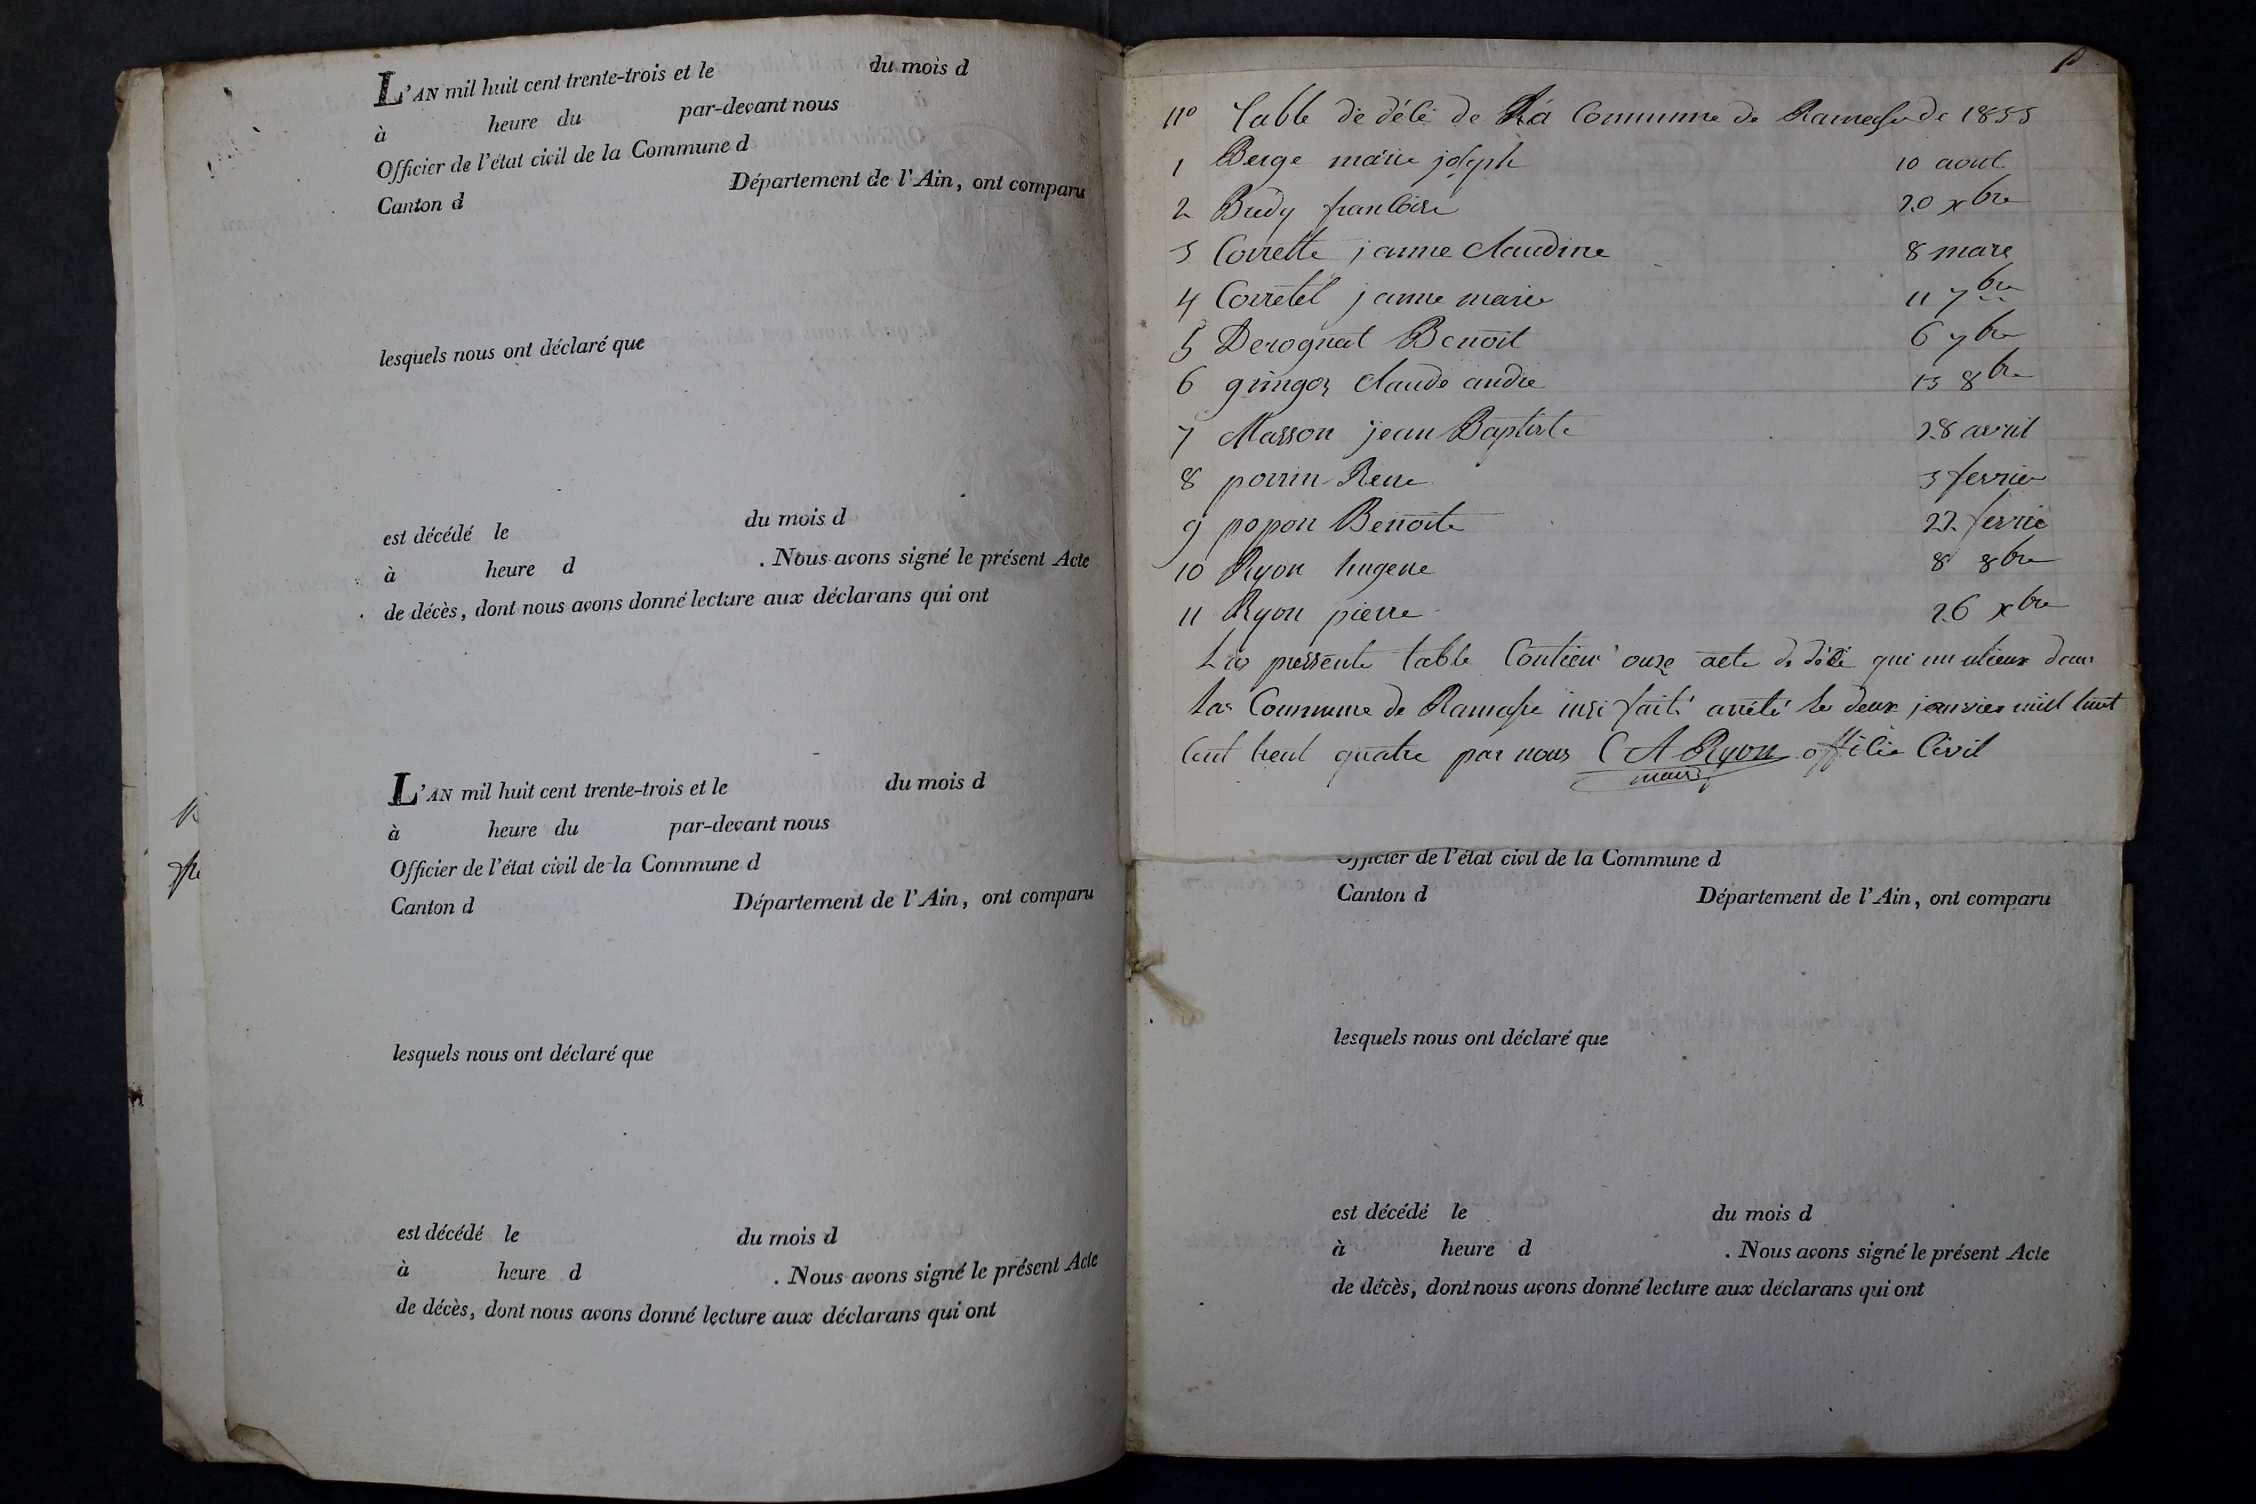 L'AN mil huit cent trente-trois et le du mois d
à heure du par-devant nous
Officier de l'état civil de la Commune d
Canton d Département de l'Ain, ont comparu
lesquels nous ont déclaré que
est décédé le du mois d
à heure d . Nous avons signé le présent Acte
de décès, dont nous avons donné lecture aux déclarans qui ont
L'AN mil huit cent trente-trois et le du mois d
à heure du par-devant nous
Officier de l'état civil de la Commune d
Canton d Département de l'Ain, ont comparu
lesquels nous ont déclaré que
est décédé le du mois d
à heure d . Nous avons signé le présent Acte
de décès, dont nous avons donné lecture aux déclarans qui ont
Table de déli de La Commune de Ramasse de 1833
1 Berge marie joseph 10 aout
2 Bredy francoise 20 xbre
3 Corrette janne Claudine 8 mars
4 Corretel janne marie 11 7bre
5 Derognat Benoit 6 7bre
6 gringoz Claude andre 13 8bre
7 Masson jean Baptiste 28 avril
8 porrin Rene 3 fevrier
9 popon Benoite 22 fevrie
10 Ryon hugene 8 8bre
11 Ryon pierre 26 xbre
La pressente table Contien onze acte de déce qui dans
la Commune de Ramasse insi fait arrêté le deux janvier mill huit
Cent trent quatre par nous C A Ryon offilie Civil
maire
Officier de l'état civil de la Commune d
Canton d Département de l'Ain, ont comparu
lesquels nous ont déclaré que
est décédé le du mois d
à heure d . Nous avons signé le présent Acte
de décès, dont nous avons donné lecture aux déclarans qui ont